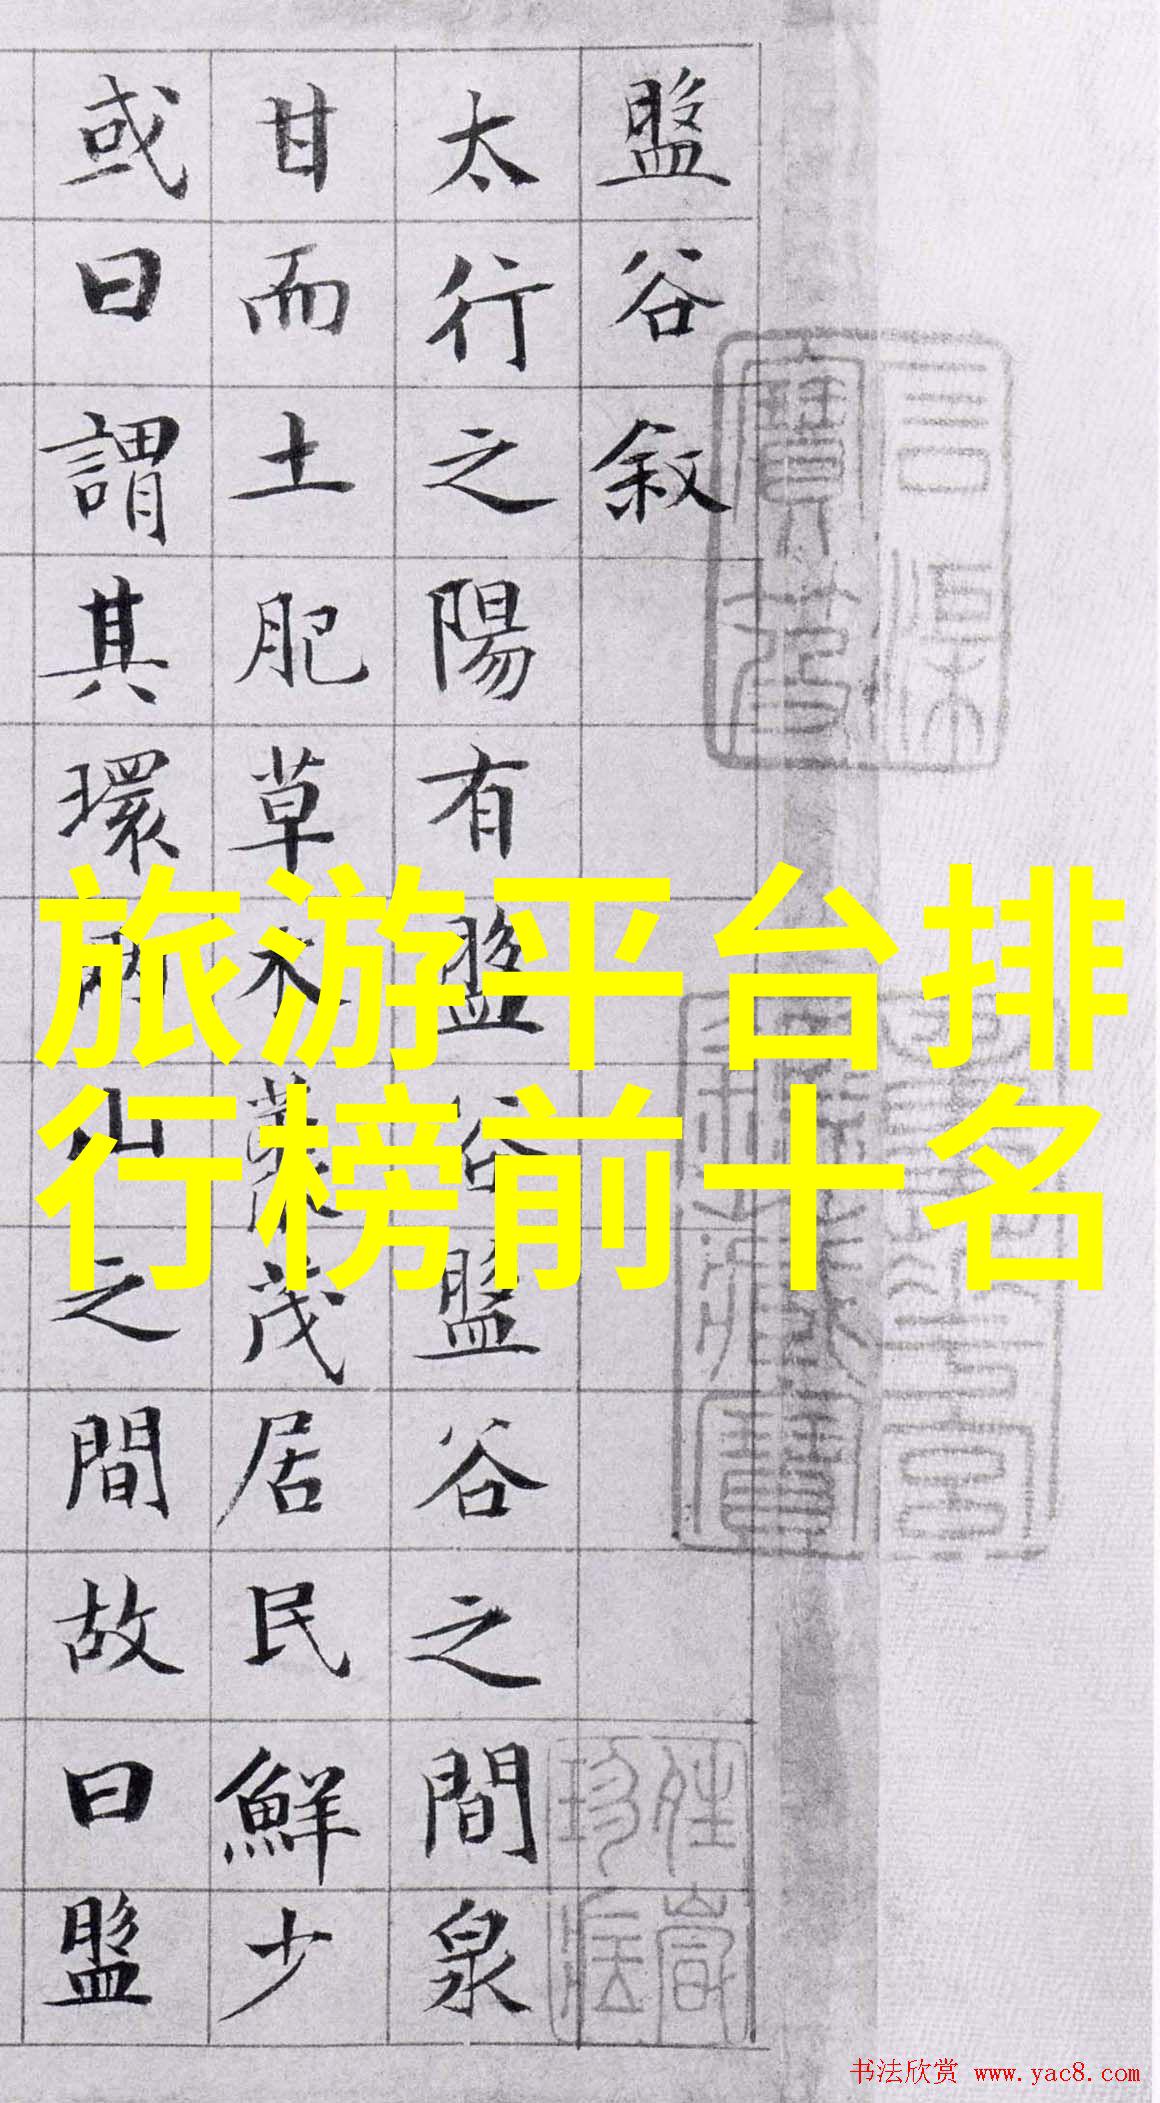 盤谷敘
太行之陽有盤谷盤谷之間泉
甘而土肥草木藂茂居民鮮少
或曰謂其環兩山之間故曰盤
旅游平台排
行榜前十名
书法欣赏 www.yac8.com